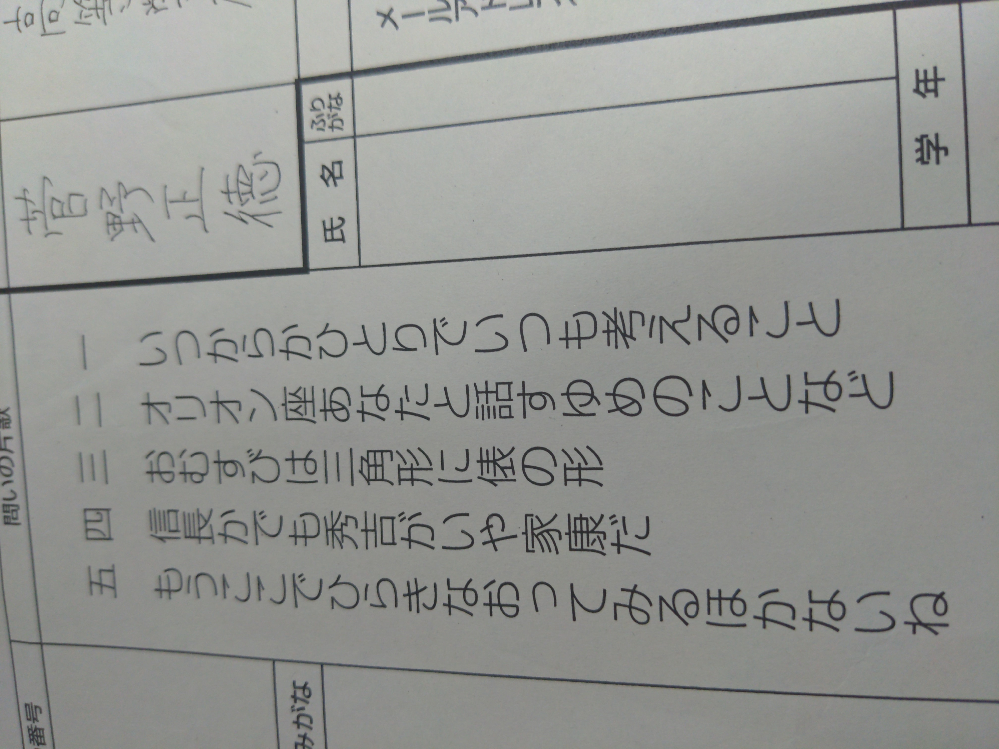 メールアドレス
ふりがな
氏名
学年
菅野正徳
問いの片歌
一 いつからかひとりでいつも考えること
二 オリオン座あなたと話すゆめのことなど
三 おむすびは三角形に俵の形
四 信長かでも秀吉がいや家康だ
五 もうここでひらきなおってみるほかないね
番号
みがな